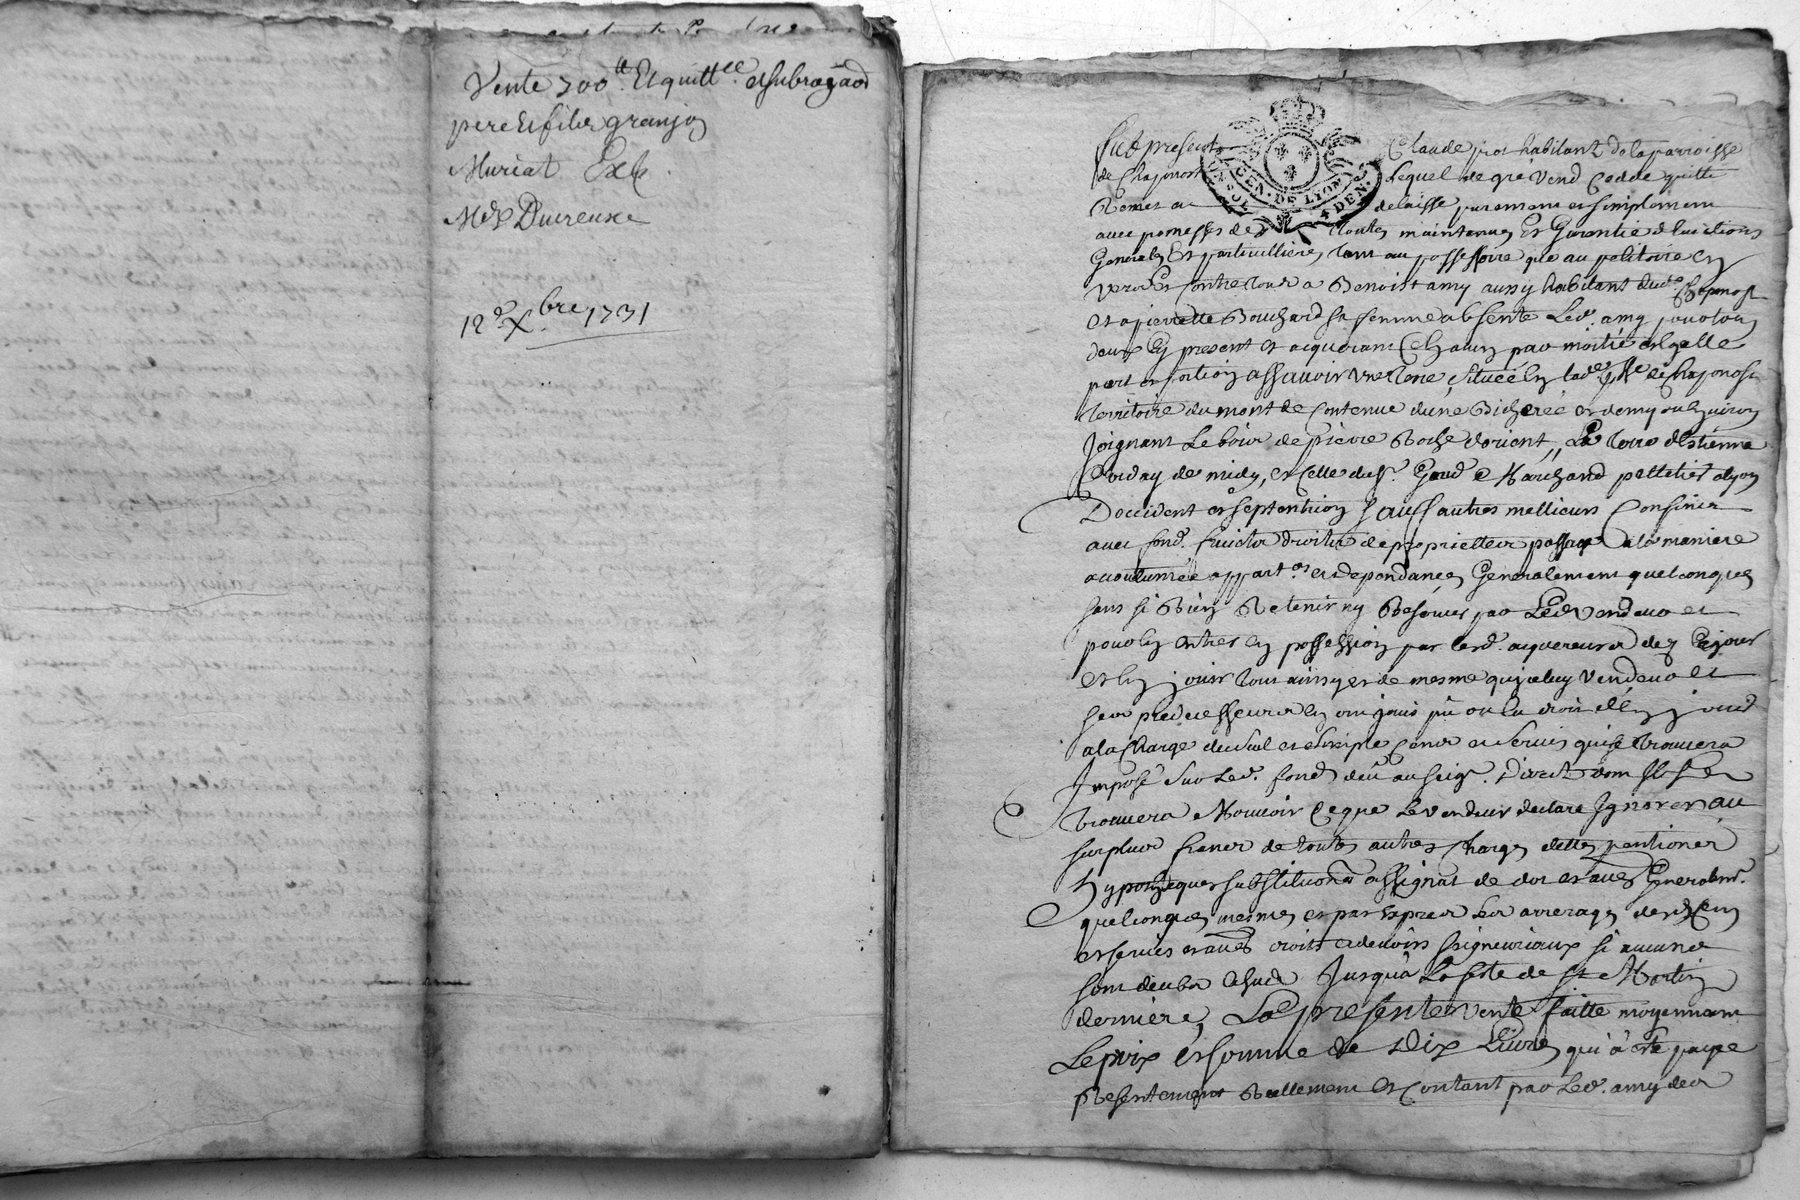 Vente 300lt. Et quittce. et subrogaon
pere et fils granjon
Muriat Exp.
Me Ducreux
12e. Xbre 1731
GEN. DE LYON
4 DEN.
Fut present Claude piot habitant de la parroisse
de Chaponost Lequel de gré Vend Cedde quitte
Remet et delaisse purement et simplement
avec promesses de toutes maintenues Et Garentie d'evictions
Generales Et particullieres tant au possessoire que au petitoire En
vers et contre tous a Benoist amy aussy habitant dudt. Chaponost
et a pierrette Bouchard sa femme absente Led. amy pour tous
deux Ey present et acquerant Chacun par moitié et Egalle
part et portion assavoir une terre, située En lade. psse. de Chaponost
territoire du mont de Contenue dune Bicherée et demy ou Environ
Joignant Le bois de pierre Roche dorient, La terre d'Estienne
de midy, et Celle du Sr. Marchand pelletier a lyon
Doccident et septentrion sauf autres mellieurs Confins
avec fond. fruicts droits de proprietter passage a la maniere
acoutumée appart.es et dependances Generalement quelconques
sans si Rien Retenir ny Reserver par Led. Vendeur et
pour En entrer En possession par lesd. aquereurs des Ce jour
et En jouir tout ainsy et de meme qu'iceluy Vendeur et
ses predecesseurs En ont jouis pû ou lu droit d'En jouir
a la Charge du seul et simple Cens et servis qui se trouvera
Imposé sur Led. fond. deü au seigr. Direct dont Il se
trouvera Mouvoir Ce que Le Vendeur declare Ignorer au
surplus franer de toutes autres Charges dettes pentioner
Hypotheques substituons assignat de dot et aues Generalemt.
quelconques mesmes et par Exprer Les arrerages desd. Cens
et servis et aues droits et devoirs seigneuriaux si aucuns
sont deubs Jusqu'à La feste de St Martin
derniere, La presente Vente faitte moyennant
Le prix et somme de Dix Livres, qui a esté payée
Presentement Reellement et Contant par Led. amy des